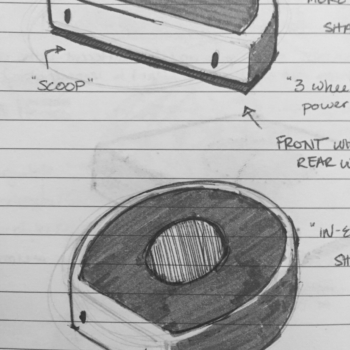 SHA
"SCOOP"
"3 whee
power
FRONT WH
REAR W
"IN-E
SH